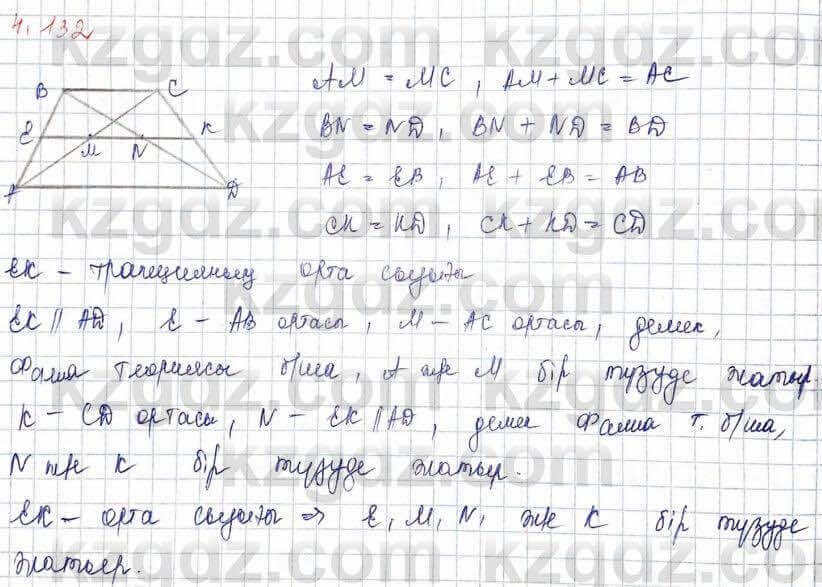 4.132
B C
E K
M N
A D
AM = MC , AM + MC = AC
BN = ND , BN + ND = BD
AE = EB , AE + EB = AB
CK = KD , CK + KD = CD
EK – трапецияның орта сызығы
EK || AD , E – AB ортасы , M – AC ортасы , демек ,
Фалеса теориясы б/ша , A және M бір түзуде жатыр.
K – CD ортасы , N – EK || AD , демек Фалеса т. б/ша,
N және K бір түзуде жатыр.
EK – орта сызығы ⇒ E, M, N, және K бір түзуде
жатыр.
kzgdz.com